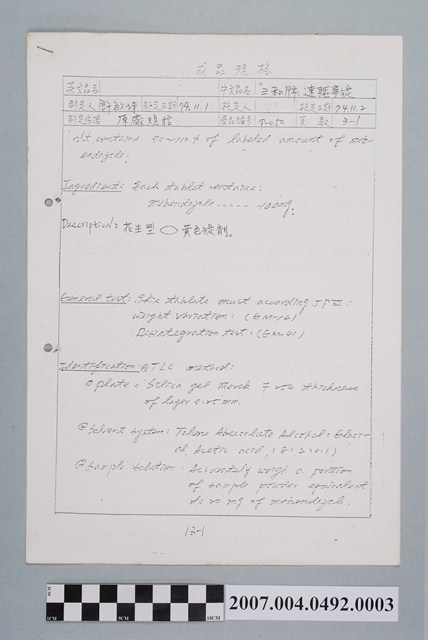 成品規格
英文品名 中文品名 "三和牌" 速賜寧錠
制定人 制定日期 74.11.1 核定人 核定日期 74.11.2
制定依據 原廠規格 產品編號 頁數 3-1
It contains of labeled amount of mebendazole.
Ingredient: Each tablet contains:
mebendazole ----- 100mg.
Description: 花生型 黃色錠劑。
General test: The tablets must according JP
Weight variation: (GM-16)
Disintegration test: (GM-21)
Identification: A TLC method:
① plate: Silica gel Merck thickness
of layer 0.25mm.
② Solvent system: Absolute Alcohol = Glaci-
al Acetic acid,
③ Sample solution: Accurately weigh a portion
of sample powder equivalent
to 20 mg of mebendazole.
13-1
2007.004.0492.0003